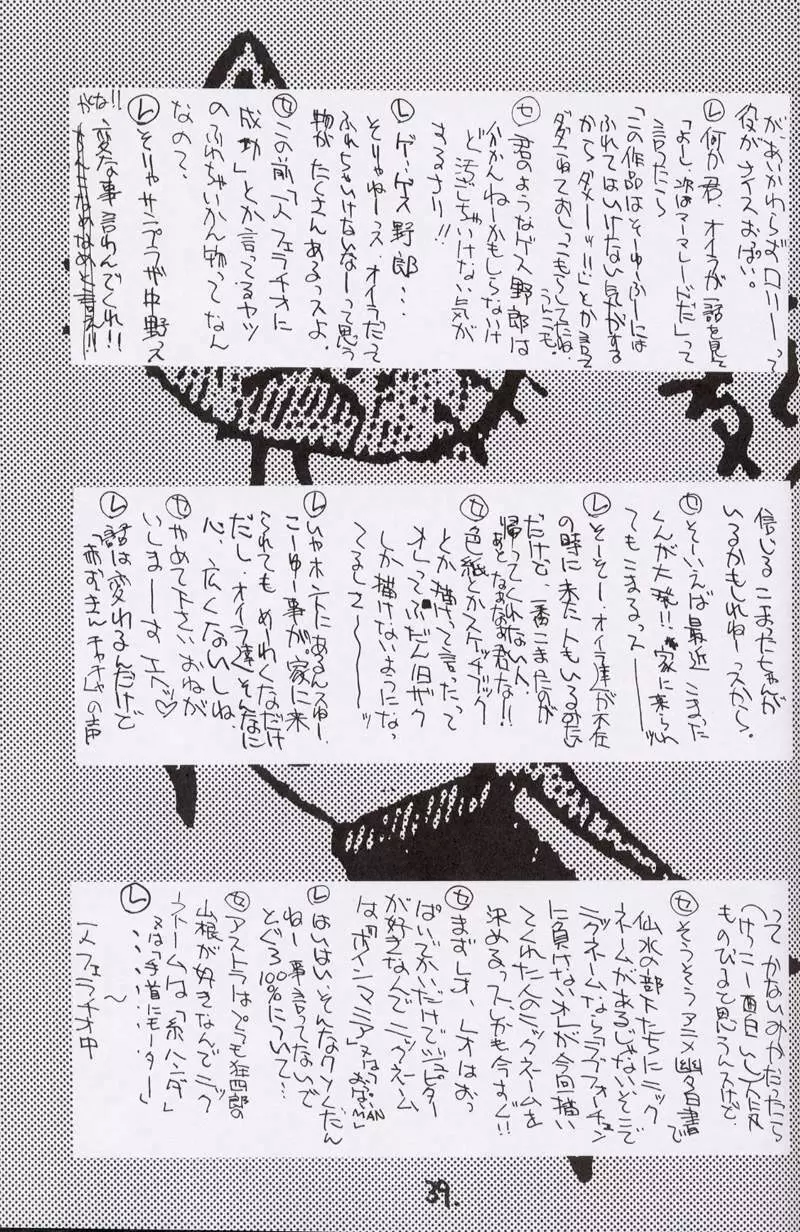 があいかわらずロリーって
役がナイスおっぱい。
Ⓛ何か君、オイラが話を見て
「よし、次はマーマレードだ」って
言ったら
「この作品はそーゆーふーには
ふれてはいけない気がする
からダメーッ!!」とか言って
ダダこねておしっこもらしてたね。
Ⓣ君のようなゲス野郎は
かかんねーかもしらないけ
ど汚しちゃいけない気が
するさり!!
Ⓛゲ、ゲス野郎…
そりゃねーっス、オイラだって
ふれちゃいけないなーって思う
物がたくさんあるっスよ。
Ⓣこの前「一人フェラチオに
成功」とか言ってるヤツ
のふれちゃいかん物ってなん
なの?
Ⓛそりゃサンプラザ中野っス
がな!!変な事言わんでくれ!!
信じるこまったちゃんが
いるかもしれねーっスから。
Ⓣそーいえば最近こまった
くんが大発!!家に来られ
てもこまるっスーッ
Ⓛそーそー、オイラ達が不在
の時に来た人もいるみたい
だけど、一番こまったのが
帰ってくれない人。
あとなぁなぁ君な!!
Ⓣ色紙とかスケッチブック
とか描けって言ったって
オレってふだん旧ザク
しか描けないようにな
てるしさーーッ
Ⓛいやホントにあるんスゆー、
こーゆー事が。家に来
られてもめーわくなだけ
だし、オイラ達そんなに
心、広くないしね。
Ⓣやめて下さいおねが
いしまーす エヘ♡
Ⓛ話は変わるんだけど
「赤ずきんチャチャ」の声
ってかないみかだったら
(けっこー面白いし)人気
ものびるて思うっスけど。
Ⓣそうそうアニメ幽白書で
仙水の部下たちにニック
ネームがあるじゃない、そこで
ニックネームならラブフォーチュン
に負けないオレが今回描い
てくれた人のニックネームを
決めるっス、しかも今すぐ!!
Ⓣまずレオ、レオはおっ
ぱいでかいだけでジュピター
が好きなんでニックネーム
は「ボインマニア」又は「おっぱいMAN」
Ⓛはいはい、そんなクソみたん
ねー事言ってないで
とぐろ100%について…
Ⓣアストラはどっちも狂四郎の
山根が好きなんでニック
ネームは「糸ハンダ」
又は「手首にモーター」
Ⓛ…………
一人フェラチオ中
〜
39.